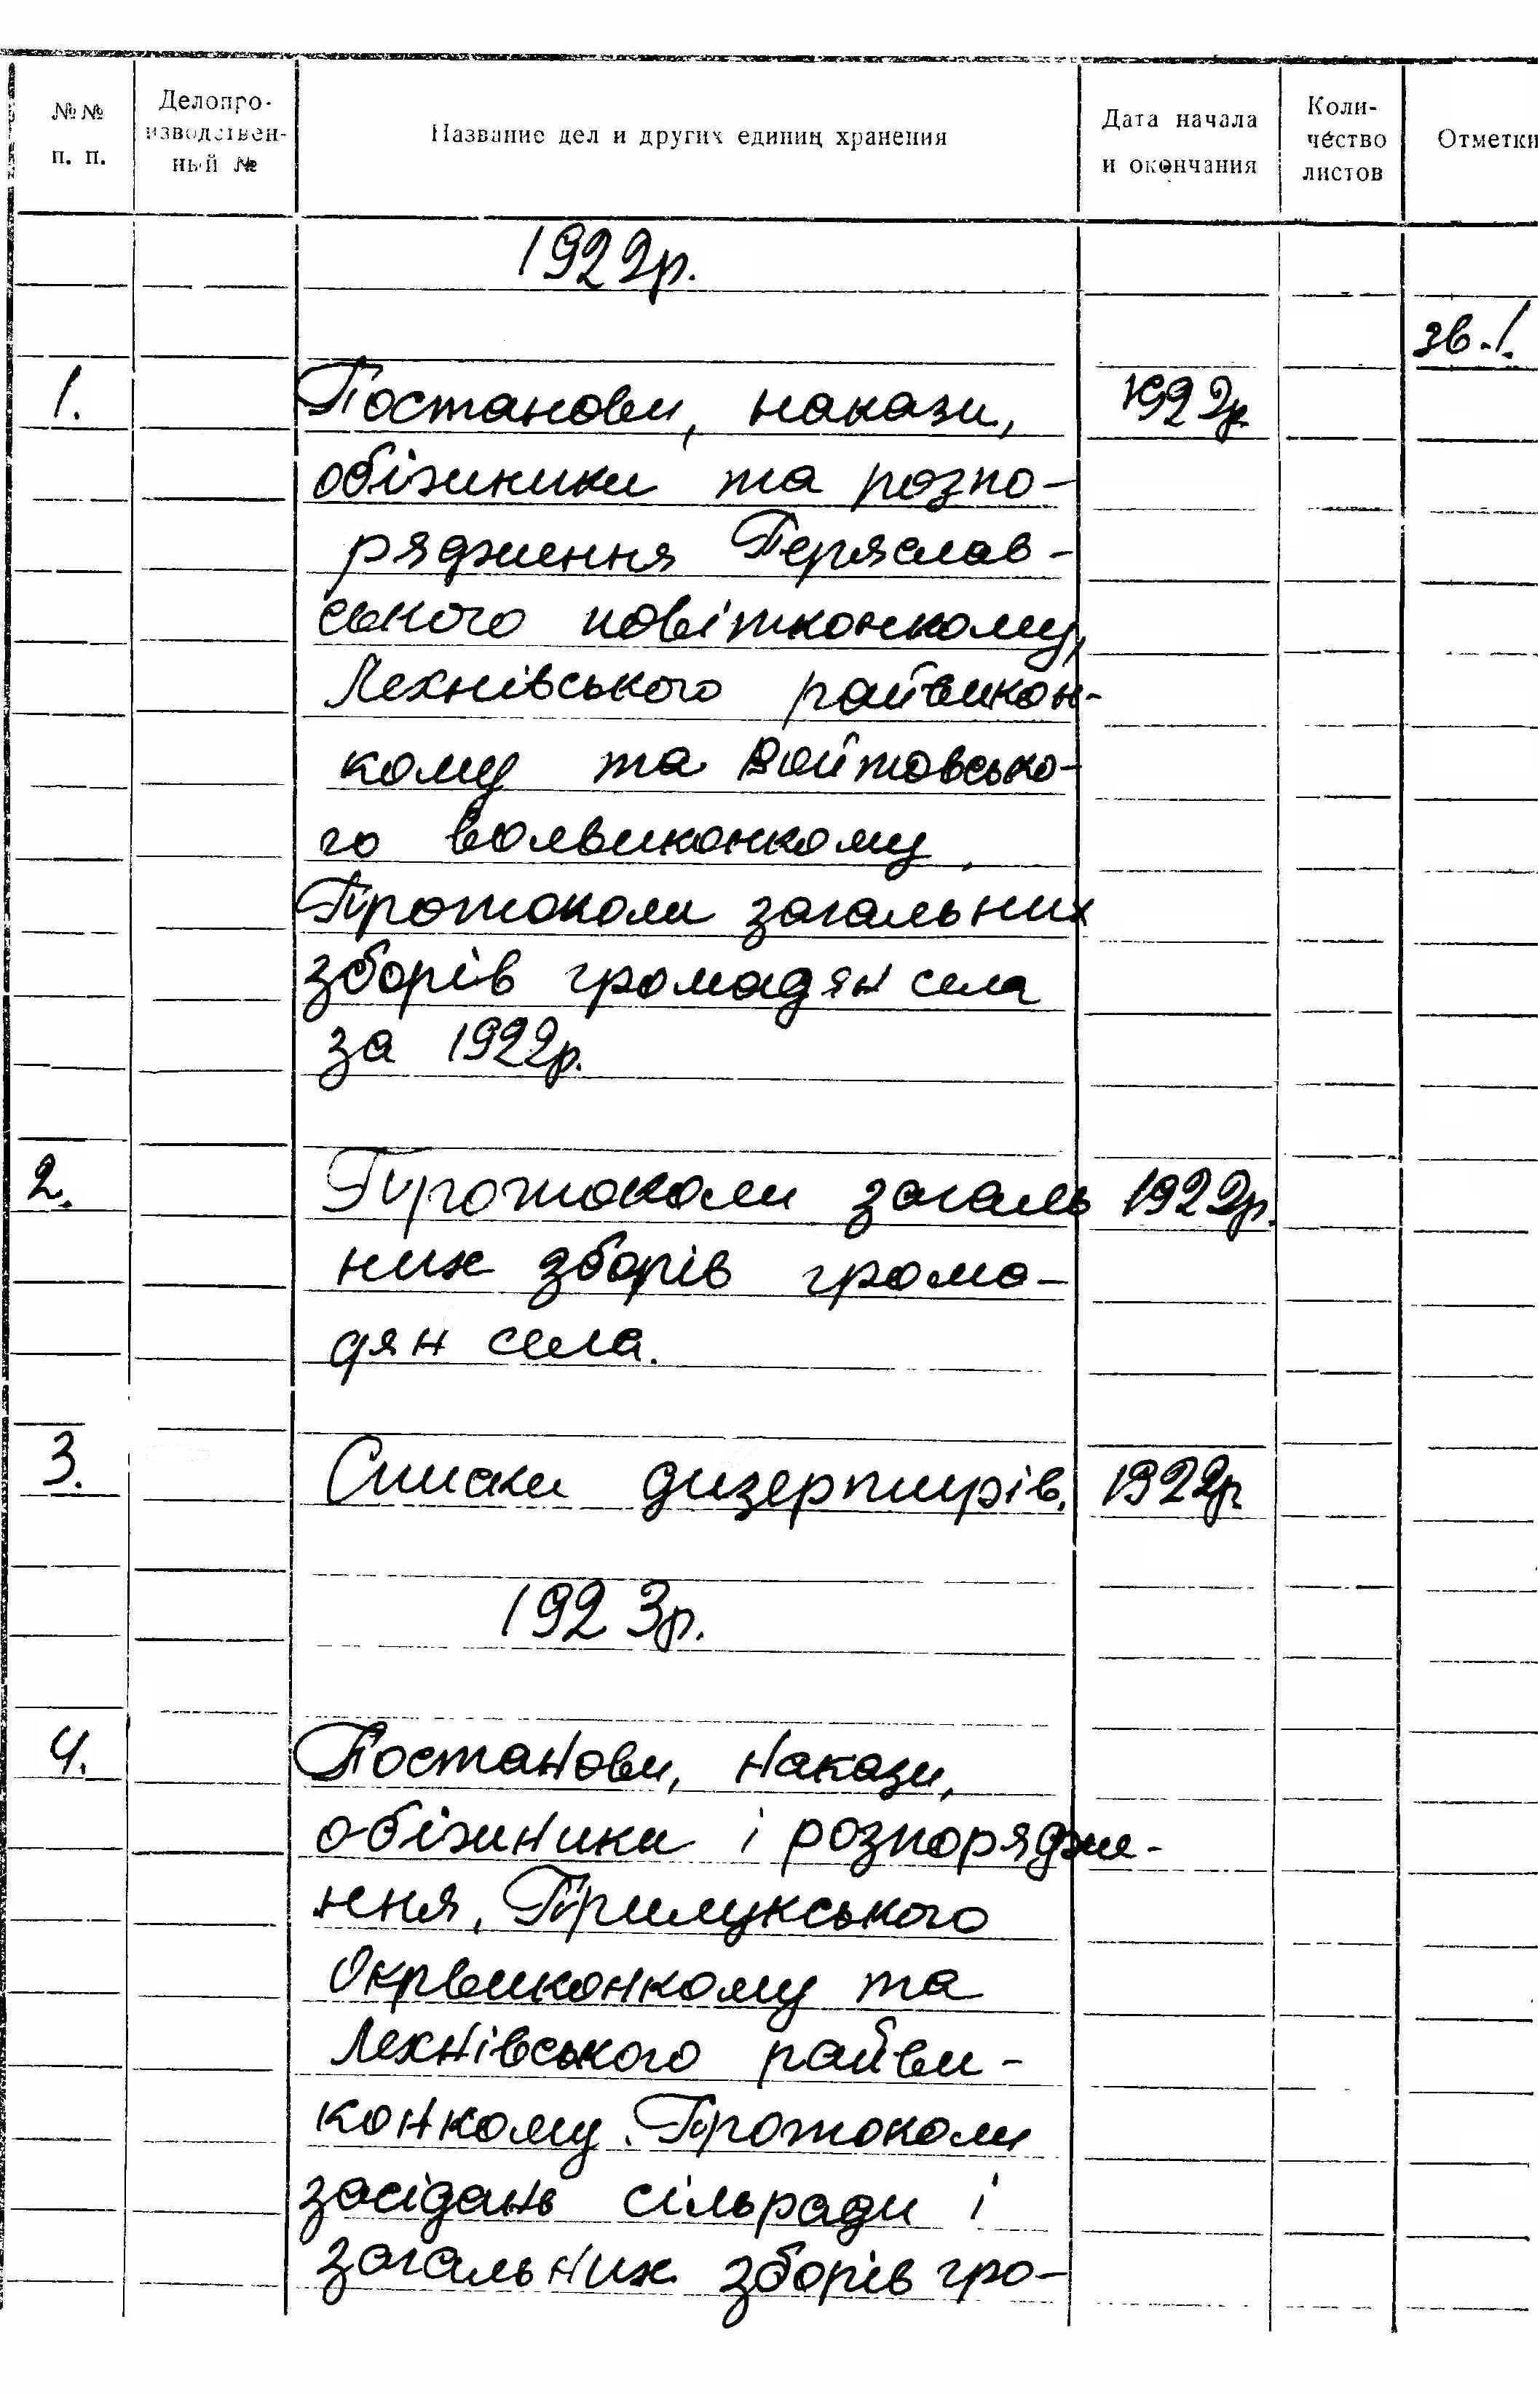 №№ п. п.
Делопро-
изводствен-
ный №
Название дел и других единиц хранения
Дата начала
и окончания
Коли-
чество
листов
Отметки
1922р.
зв.1.
1. Постанови, накази, 1922р.
обіжники та розпо-
рядження Переяслав-
ського повітконкому,
Лехнівського райвикон-
кому та Войтовсько-
го волвиконкому.
Протоколи загальних
зборів громадян села
за 1922р.
2. Протоколи загаль 1922р.
них зборів грома-
дян села.
3. Списки дизертирів. 1922р.
1923р.
4. Постанови, накази,
обіжники і розпорядже-
ння, Прилукського
Окрвиконкому та
Лехнівського райви-
конкому. Протоколи
засідань сільради і
загальних зборів гро-